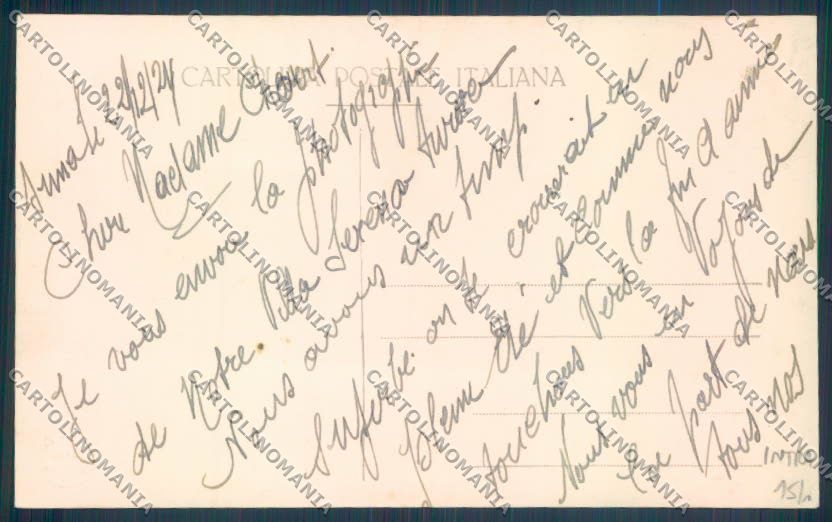 CARTOLINA POSTALE ITALIANA
22/12/24
Chere Madame
Je vous envoie la photographie
de Notre Villa Serena
Nous avons un temps
superbe on se croirait en
pleine été et comme nous
touchons vers la fin d'année
Nous vous en
de la part de nous
tous nos
INTRA
15/
CARTOLINOMANIA